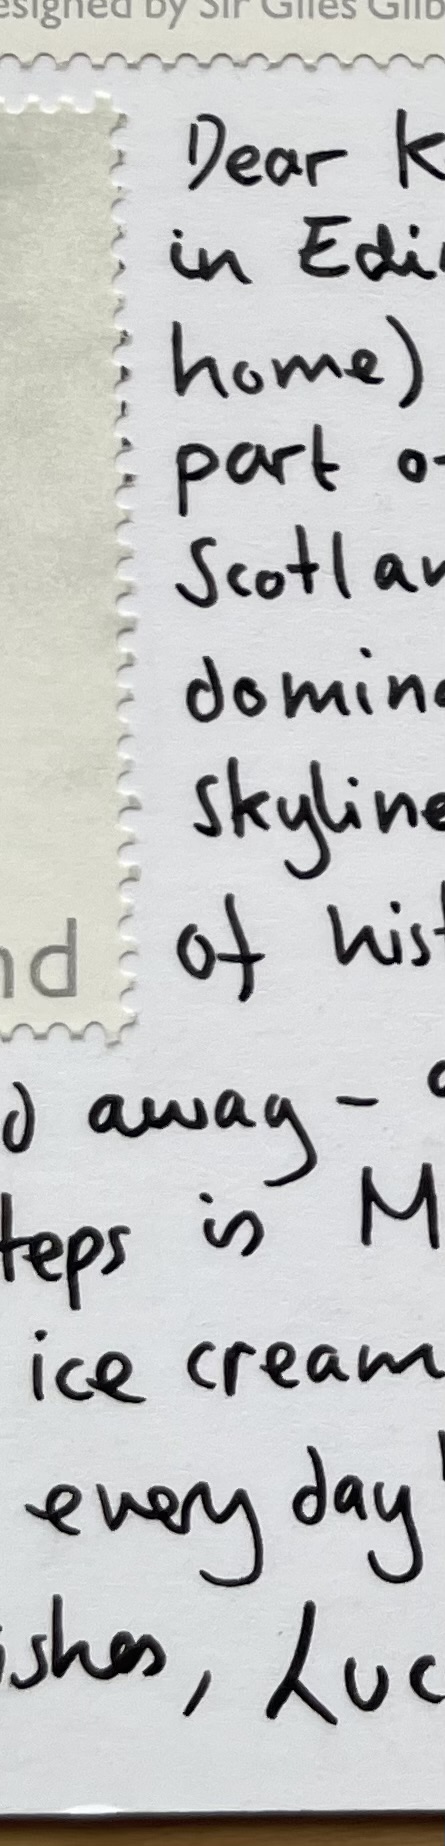 esigned by Sir Giles Gilb
Dear K
in Edin
home)
part of
Scotlan
domina
skyline
of hist
nd
d away -
steps is M
ice cream
every day
ishes, Luc